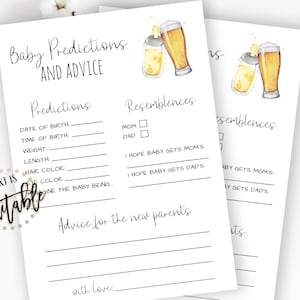 Baby Predictions
AND ADVICE
Predictions
DATE OF BIRTH:
TIME OF BIRTH:
WEIGHT:
LENGTH:
HAIR COLOR:
COLOR:
INE THE BABY BEING:
Resemblences
MOM
DAD
I HOPE BABY GETS MOM'S:
I HOPE BABY GETS DAD'S:
Advice for the new parents:
with love:
IS
Resemblences
I HOPE BABY GETS MOM'S:
I HOPE BABY GETS DAD'S: